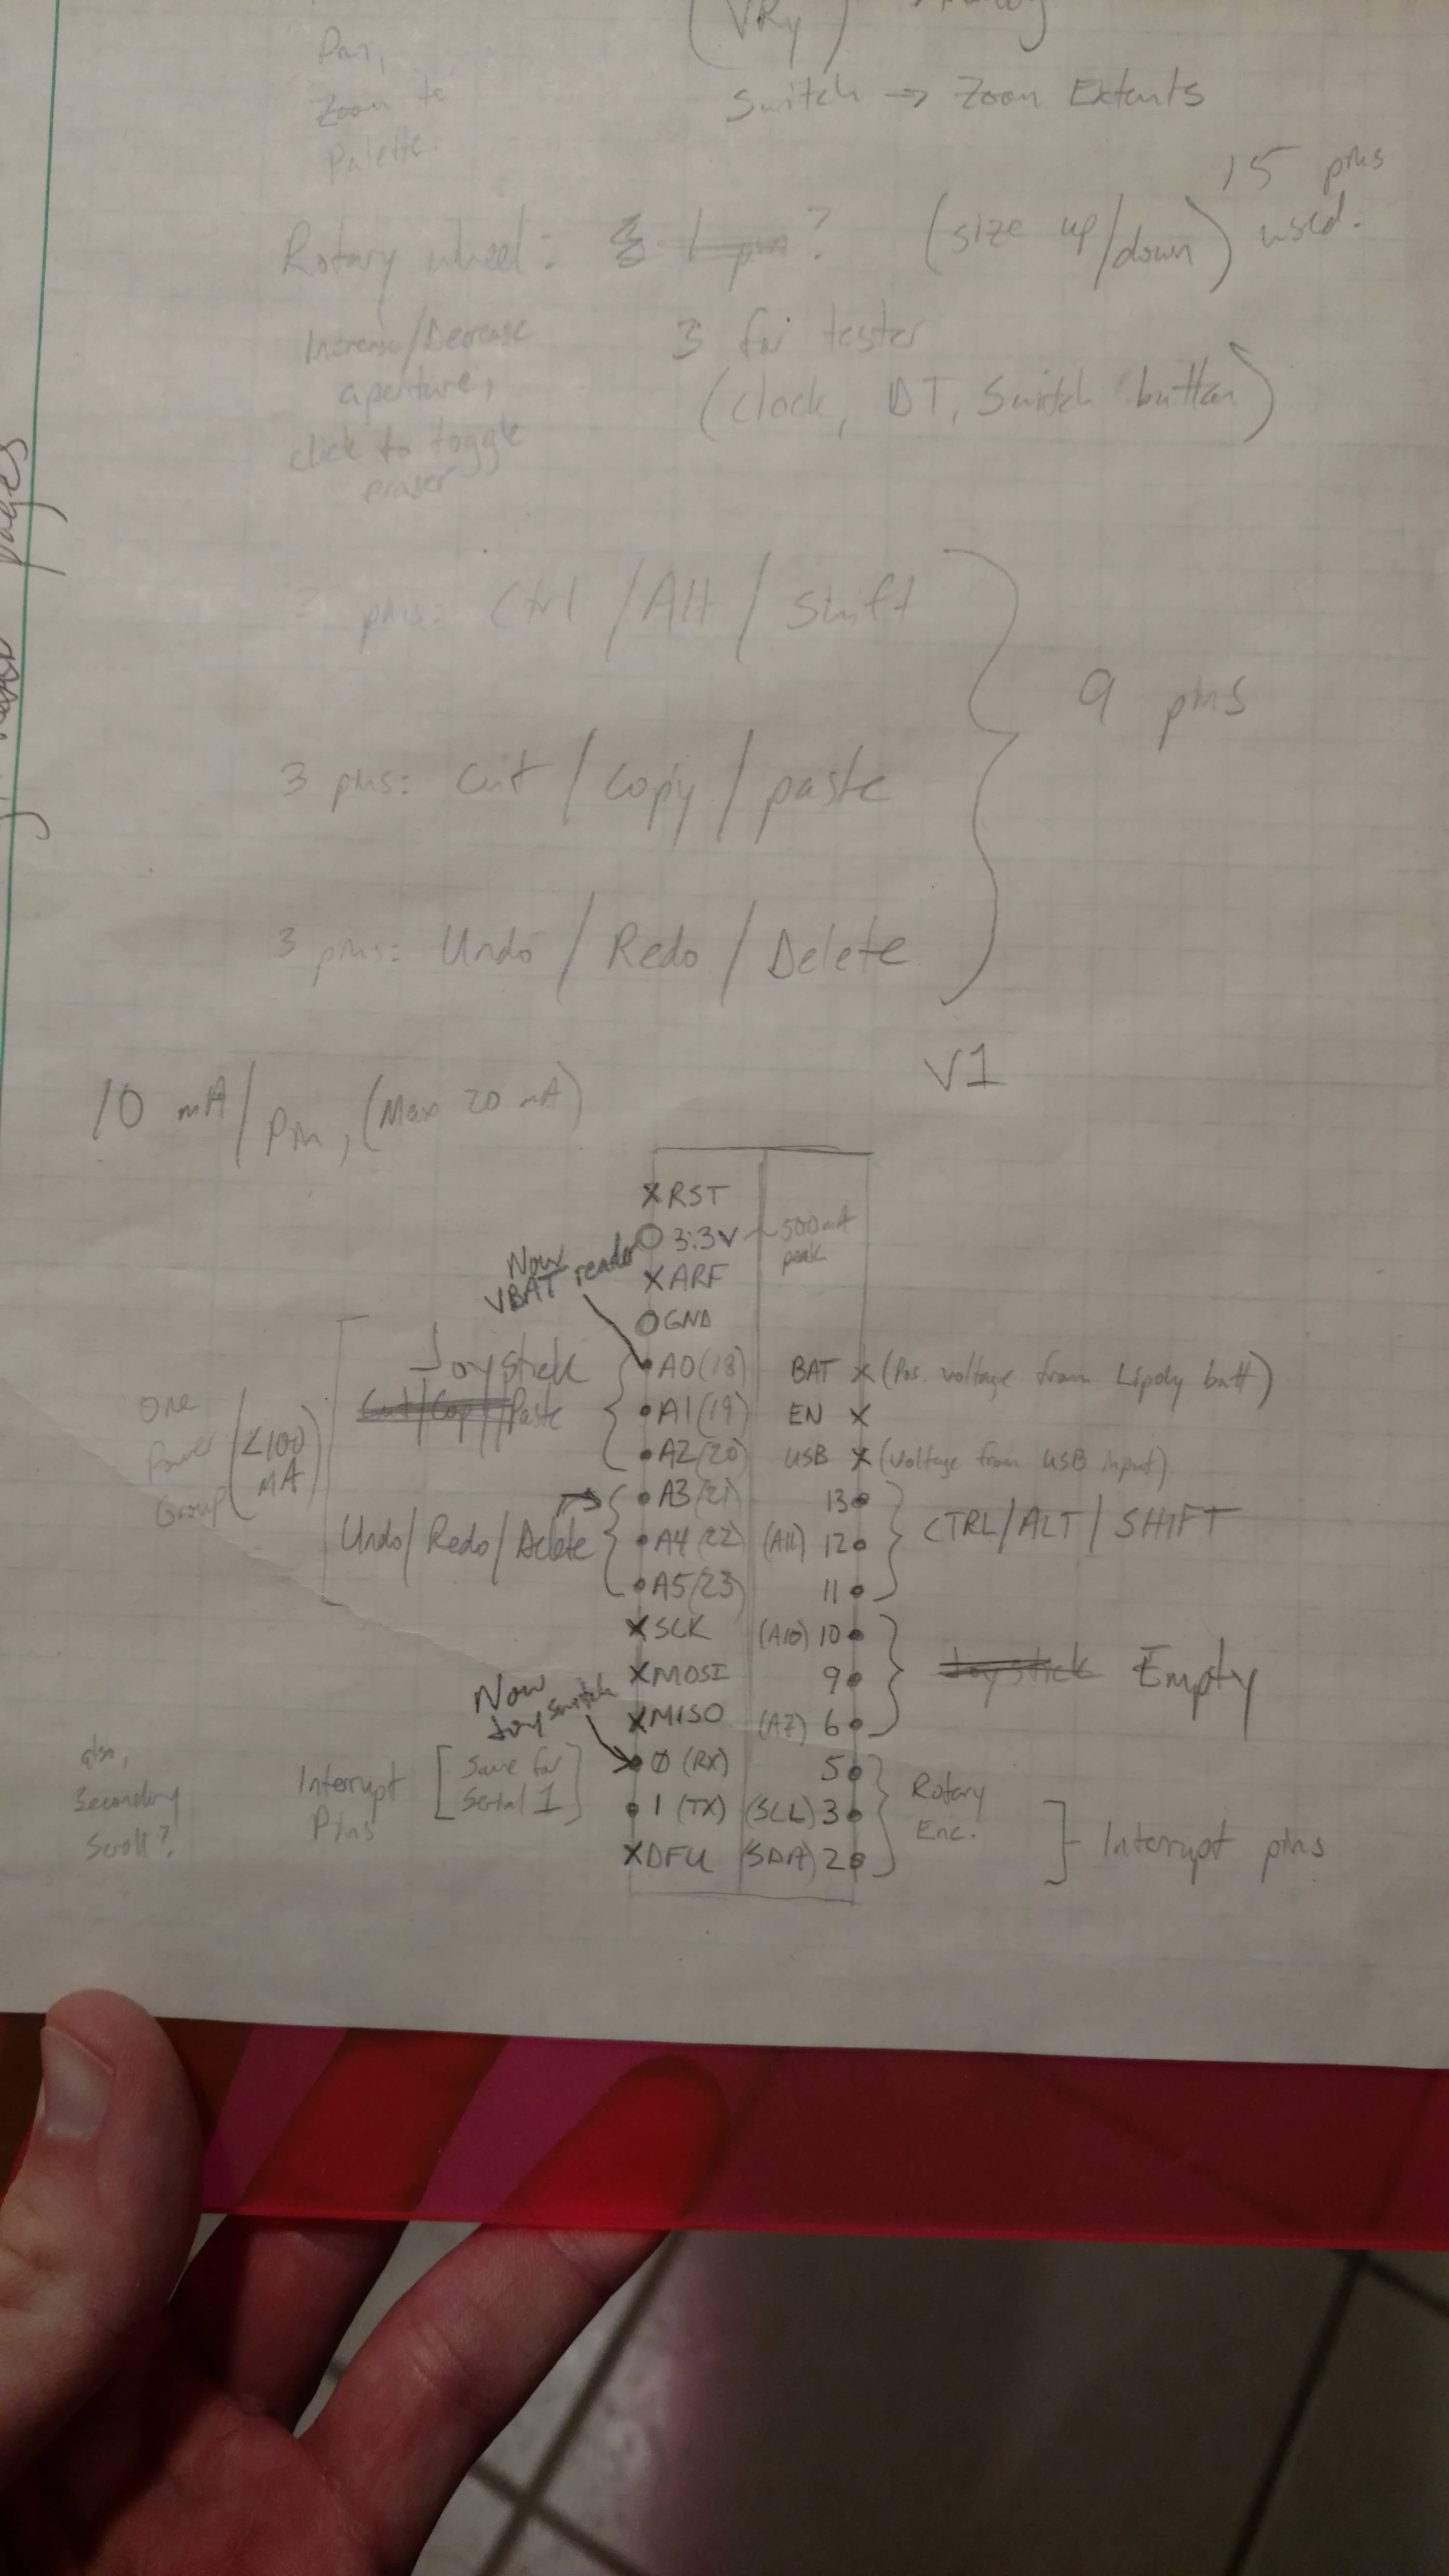 (VRy)
Pan,
Zoom to
Palette.
Switch → Zoom Extents
15 pins
used.
Rotary wheel: 1 pin? (size up/down)
Increase/Decrease
aperture,
click to toggle
eraser
3 for tester
(clock, DT, Switch button)
pages
3 pins: Ctrl / Alt / Shift
9 pins
3 pins: Cut / Copy / paste
3 pins: Undo / Redo / Delete
V1
10 mA/Pin, (Max 20 mA)
X RST
3.3V ~500mA
peak
Now
VBAT reader
X ARF
GND
Joystick
A0(18) BAT X (Pos. voltage from Lipoly batt)
Cut/Copy/Paste
A1(19) EN X
A2(20) USB X (Voltage from USB input)
One
Power
Group
(<100
mA
A3(21) 13
Undo/Redo/Delete
A4(22) (A11) 12 CTRL/ALT/SHIFT
A5(23) 11
X SCK (A10) 10
X MOSI 9 Joystick Empty
X MISO (A7) 6
Now
Joy switch
0 (RX) 5
1 (TX) (SCL) 3
X DFU (SDA) 2
Interrupt
Pins
[Save for
Serial 1]
also,
Secondary
Scroll?
Rotary
Enc.
Interrupt pins